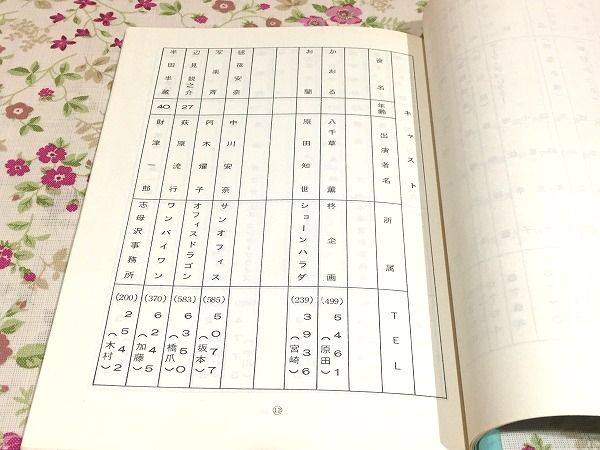 キャスト
役名 年齢 出演者名 所属 TEL
かおる 八千草薫 柊企画 (499)5461(原田)
お蘭 原田知世 ショーンハラダ (239)3936(宮崎)
毬茂安奈 中川安奈 サンオフィス (585)5077(坂本)
写楽斉 阿木燿子 オフィスドラゴン (583)6350(橋爪)
辺見鋭之介 27 萩原流行 ワンバイワン (370)6245(加藤)
半田半蔵 40 財津一郎 志母沢事務所 (200)2542(木村)
⑫